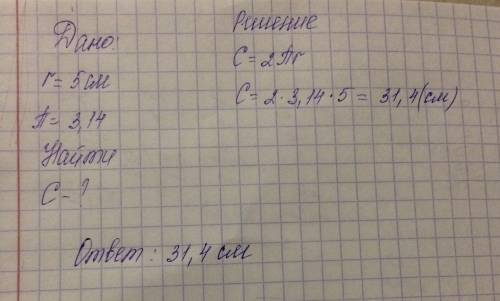 Дано:
r = 5 см
π = 3,14
Найти
C - ?
Решение
C = 2πr
C = 2 · 3,14 · 5 = 31,4 (см)
Ответ: 31,4 см